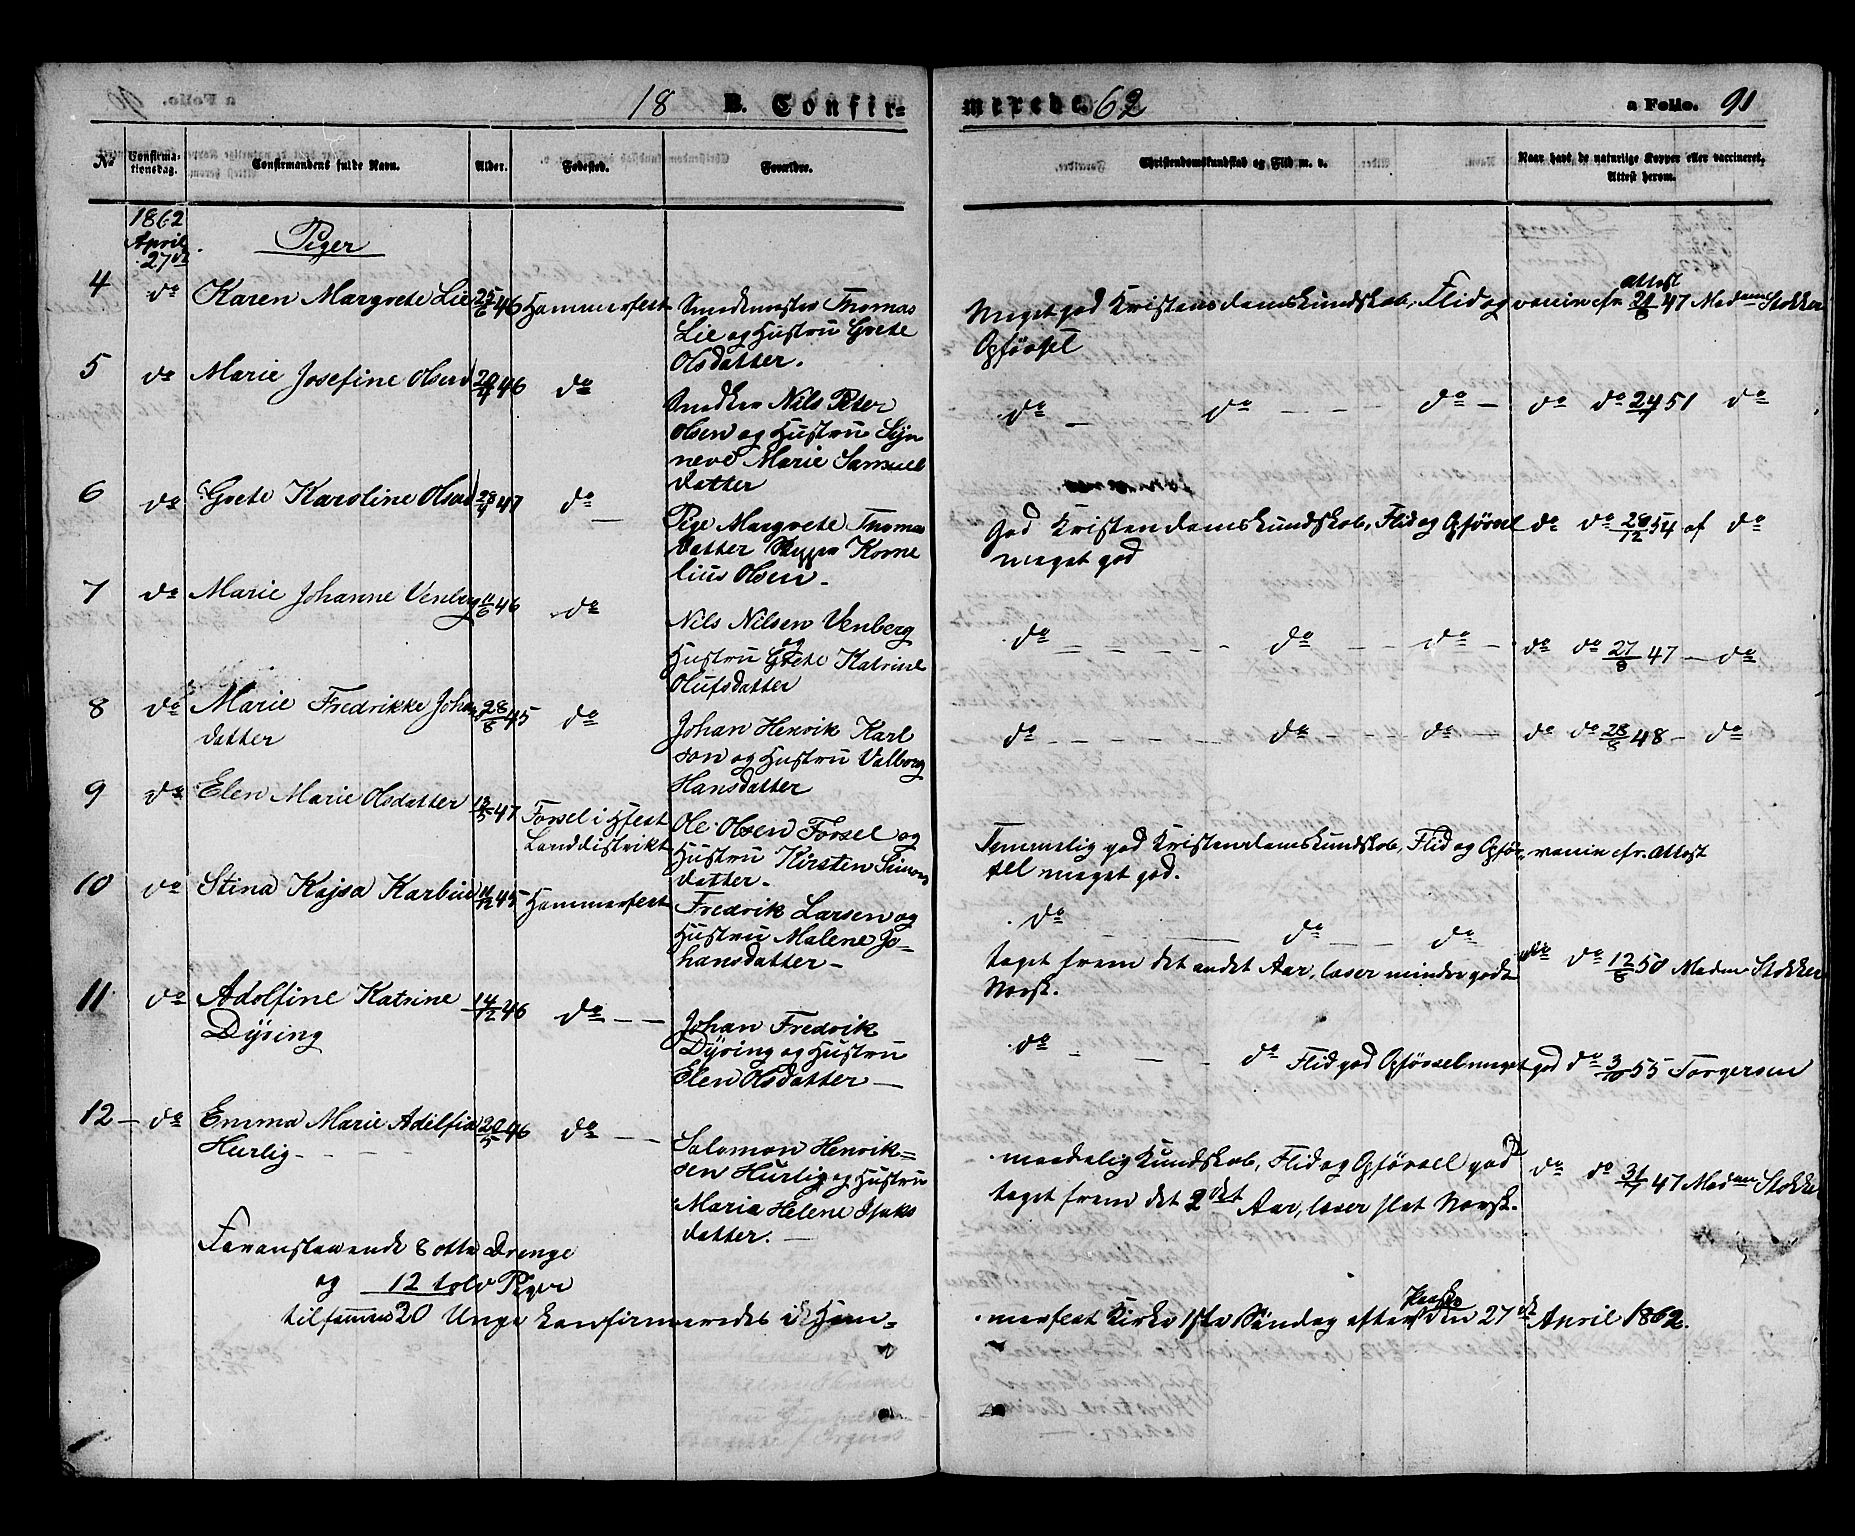 18 B. Confir=
merede. 62 a Folio. 91
No Confirma-tionsdag. Confirmandens fulde Navn. Alder. Fødested. Forældre.
Christendomskundskab og Flid m. v. Naar havt de naturlige Kopper eller vaccineret. Attest herom.
1862
April
27de
Piger
4 do Karen Margrete Lie 25/6 46 Hammerfest Smedmester Thomas
Lie og Hustru Grete
Olsdatter.
Meget god Kristendomskundskab, Flid og
Opførsel
attest
vaccin efr. 21/8 47 Madam Stokker
5 do Marie Josefine Olsen 20/4 46 do
Snedker Nils Peter
Olsen og Hustru Syn
neve Marie Samuel
datter
do do do do do 24/7 51 do
6 do Grete Karoline Olsen 28/4 47 do
Pige Margrete Thomas
datter Korne
lius Olsen.
God Kristendomskundskab, Flid og Opførsel
meget god
do do 28/12 54 af do
7 do Marie Johanne Venberg 11/6 46 do
Nils Nilsen Venberg
og
Hustru Grete Katrine
Olufsdatter
do do do do do 27/8 47 do
8 do Marie Fredrikke Johan
datter
28/8 45 do
Johan Henrik Karl
son og Hustru Valborg
Hansdatter
do do do do do 28/8 48 do
9 do Elen Marie Olsdatter 13/5 47 Forsøl i Hfest
Landdistrikt
Ole Olsen Forsøl og
Hustru Kirsten Simons
datter.
Temmelig god Kristendomskundskab, Flid og Opfør
sel meget god.
vaccin efr. attest
10 do Stina Kajsa 11/12 45 Hammerfest
Fredrik Larsen og
Hustru Malene Jo-
hansdatter
do do do
taget frem det andet Aar, læser mindre godt
Norsk.
do do 12/8 50 Madm Stokker
11 do Adolfine Katrine
Dyring
14/12 46 do
Johan Fredrik
Dyring og Hustru
Elen Olsdatter
do do Flid god Opførsel meget god do 3/10 55 Torgersen
12 do Emma Marie Adelfia
Hurlig
20/5 46 do
Salomon Henrik=
sen Hurlig og Hustru
Maria Helene Isaks
datter.
maadelig Kundskab, Flid og Opførsel god
taget frem det 2det Aar, læser slet Norsk.
do do 31/7 47 Madam Stokker
Foranstaaende 8 otte Drenge
og 12 tolv Piger
tilsammen 20 Unge konfirmeredes i Ham=
merfest Kirke 1ste Søndag efter Paaske den 27de April 1862.